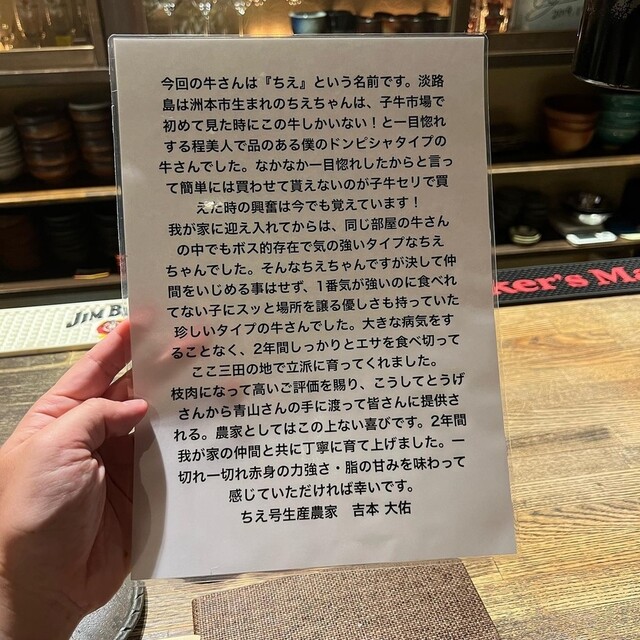 今回の牛さんは『ちえ』という名前です。淡路
島は洲本市生まれのちえちゃんは、子牛市場で
初めて見た時にこの牛しかいない！と一目惚れ
する程美人で品のある僕のドンピシャタイプの
牛さんでした。なかなか一目惚れしたからと言っ
て簡単には買わせて貰えないのが子牛セリで買
えた時の興奮は今でも覚えています！
我が家に迎え入れてからは、同じ部屋の牛さん
の中でもボス的存在で気の強いタイプなちえ
ちゃんでした。そんなちえちゃんですが決して仲
間をいじめる事はせず、1番気が強いのに食べれ
てない子にスッと場所を譲る優しさも持っていた
珍しいタイプの牛さんでした。大きな病気をす
ることなく、2年間しっかりとエサを食べ切って
ここ三田の地で立派に育ってくれました。
枝肉になって高いご評価を賜り、こうしてとうげ
さんから青山さんの手に渡って皆さんに提供さ
れる。農家としてはこの上ない喜びです。2年間
我が家の仲間と共に丁寧に育て上げました。一
切れ一切れ赤身の力強さ・脂の甘みを味わって
感じていただければ幸いです。
ちえ号生産農家　吉本 大佑
JIM B
ker's Ma